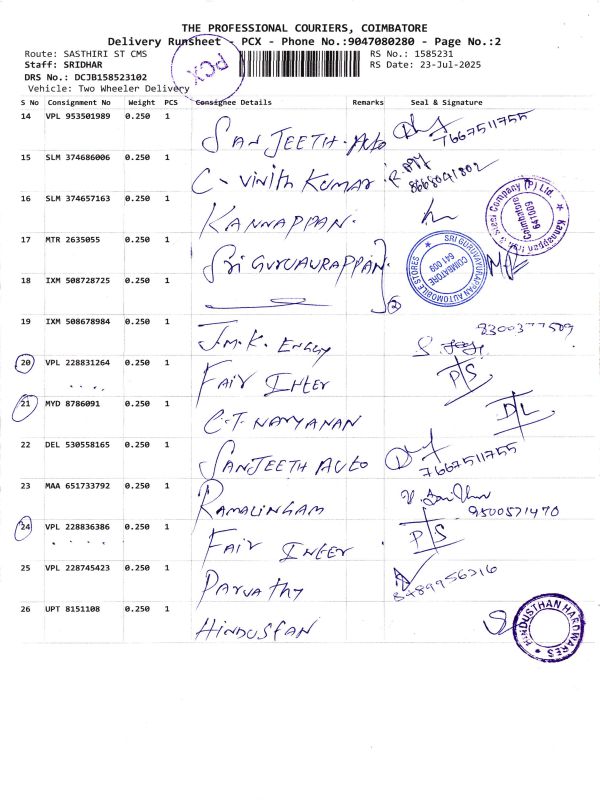 THE PROFESSIONAL COURIERS, COIMBATORE
Delivery Runsheet - PCX - Phone No.:9047080280 - Page No.:2
Route: SASTHIRI ST CMS RS No.: 1585231
Staff: SRIDHAR RS Date: 23-Jul-2025
DRS No.: DCJB158523102
Vehicle: Two Wheeler Delivery
PCX
S No Consignment No Weight PCS Consignee Details Remarks Seal & Signature
14 VPL 953501989 0.250 1 SANJEETH. Auto 7667511755
15 SLM 374686006 0.250 1 C - Vinith Kumar 8668041802
16 SLM 374657163 0.250 1 KANNAPPAN.
Kannappan Iron & Steel Company (P) Ltd. Coimbatore 641009
17 MTR 2635055 0.250 1 Sri GURUVAURAPPAN.
SRI GURUVAYURAPPAN AUTOMOBILE STORES COIMBATORE 641 009
18 IXM 508728725 0.250 1 2
19 IXM 508678984 0.250 1 J.M.K. ENGGY 8300377509
20 VPL 228831264 0.250 1 FAIR INTER P S
21 MYD 8786091 0.250 1 C.T. NARYANAN D L
22 DEL 530558165 0.250 1 SANJEETH AUTO 7667511755
23 MAA 651733792 0.250 1 RAMALINGAM 9500571470
24 VPL 228836386 0.250 1 FAIR INTER P S
25 VPL 228745423 0.250 1 PARVATHY 8489956216
26 UPT 8151108 0.250 1 HINDUSTAN
HINDUSTHAN HARDWARES